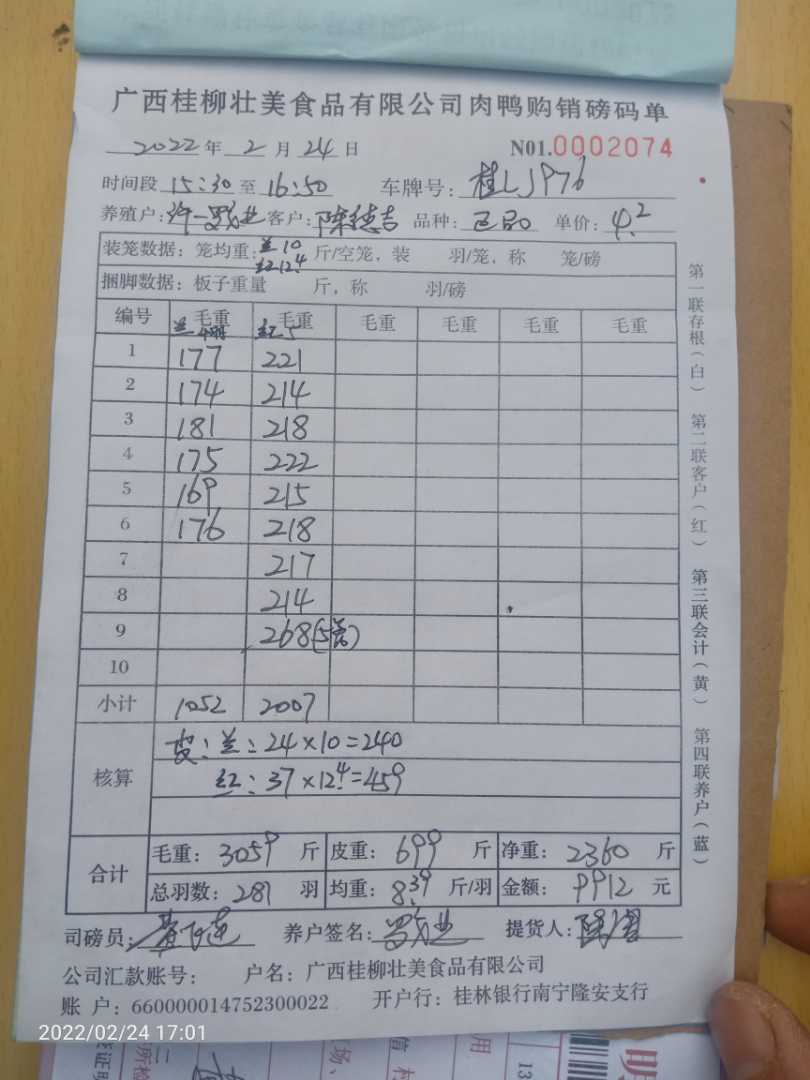 广西桂柳壮美食品有限公司肉鸭购销磅码单
2022年2月24日 N01.0002074
时间段15:30至16:50 车牌号：桂LJ976
养殖户：许一罗茂业 客户：陈德吉 品种： 单价：4.2
装笼数据：笼均重：兰10 红12.4 斤/空笼，装 羽/笼，称 笼/磅
捆脚数据：板子重量 斤，称 羽/磅
编号 毛重 毛重 毛重 毛重 毛重 毛重
兰 红5
1 177 221
2 174 214
3 181 218
4 175 222
5 169 215
6 176 218
7 217
8 214
9 268(5笼)
10
小计 1052 2007
核算 皮：兰：24×10=240
红：37×12.4=459
合计 毛重：3059斤 皮重：699斤 净重：2360斤
总羽数：281羽 均重：8.39斤/羽 金额：9912元
司磅员： 养户签名：罗茂业 提货人：
公司汇款账号： 户名：广西桂柳壮美食品有限公司
账 户：660000014752300022 开户行：桂林银行南宁隆安支行
第一联存根（白） 第二联客户（红） 第三联会计（黄） 第四联养户（蓝）
2022/02/24 17:01